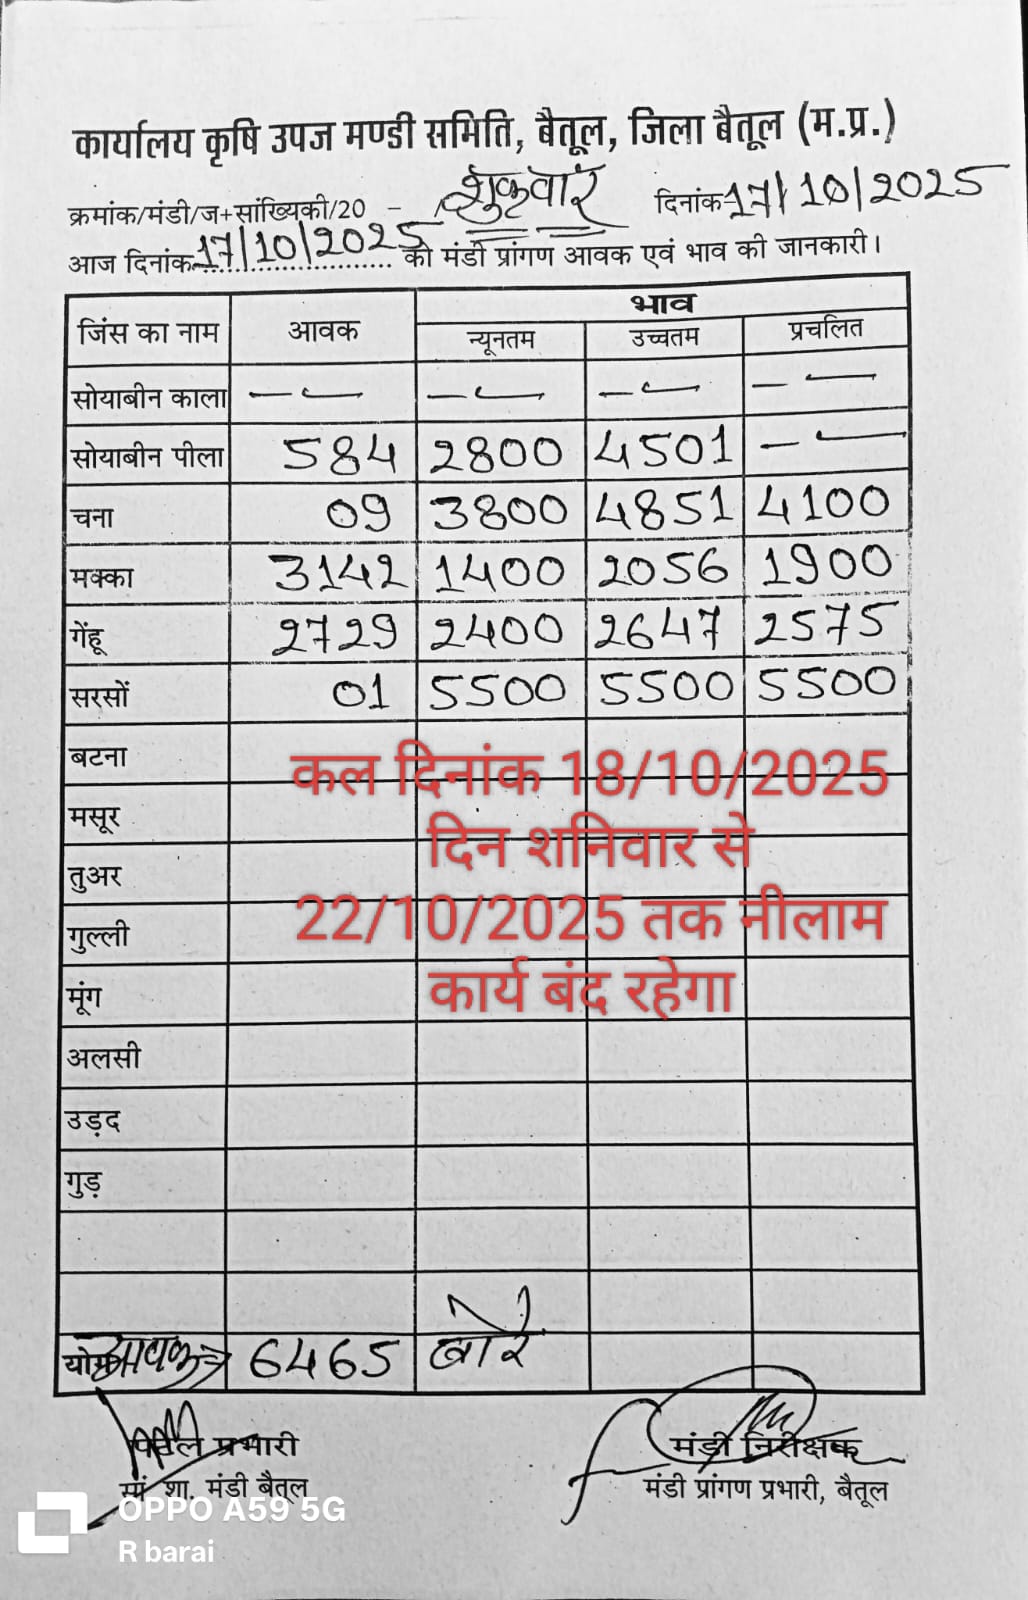 कार्यालय कृषि उपज मण्डी समिति, बैतूल, जिला बैतूल (म.प्र.)
क्रमांक/मंडी/ज+सांख्यिकी/20 - शुक्रवार दिनांक 17/10/2025
आज दिनांक 17/10/2025 को मंडी प्रांगण आवक एवं भाव की जानकारी।
जिंस का नाम आवक भाव
न्यूनतम उच्चतम प्रचलित
सोयाबीन काला — — — —
सोयाबीन पीला 584 2800 4501 —
चना 09 3800 4851 4100
मक्का 3142 1400 2056 1900
गेंहू 2729 2400 2647 2575
सरसों 01 5500 5500 5500
बटना
मसूर
तुअर
गुल्ली
मूंग
अलसी
उड़द
गुड़
कल दिनांक 18/10/2025
दिन शनिवार से
22/10/2025 तक नीलाम
कार्य बंद रहेगा
योग 6465 बोरे
प्रभारी मंडी निरीक्षक
सां. शा. मंडी बैतूल मंडी प्रांगण प्रभारी, बैतूल
OPPO A59 5G
R barai